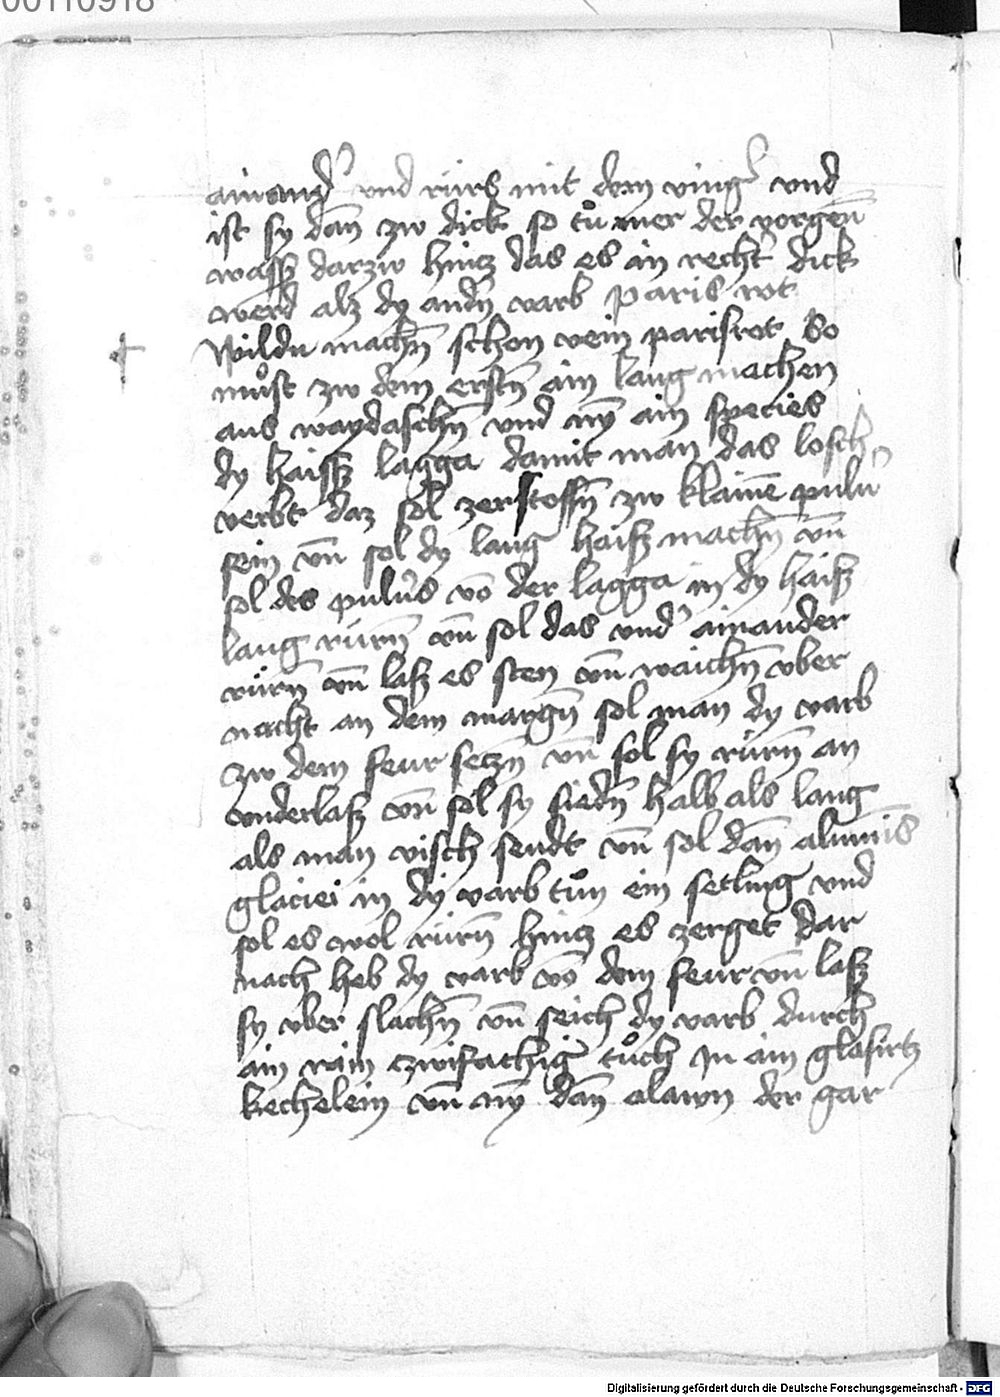 00110918
ainand' vnd rürs mit dem ving' vnd
ist sy dan̄ zw dick so tůmer der vorgen̄
wassz darzw hintz das es in recht' dick
werd alz dy andn̄ varb paris rot
Wildu mach̄n schon vein parisrot So
můst zw dem erstn̄ ain laug machen
aus waydaschn̄ vnd nȳ ain species
dy haissz lagga damit man das losch
verbt daz sol zerstossn̄ zw klaine pulu'
sein vn̄ sol dy laug haisz mach̄n vn̄
sol des pulu's vō der lagga in dy haisz
laug rürn̄ vn̄ sol das vnd' ainander
rürn̄ vn̄ lasz es sten vn̄ waich̄n vber
nacht an dem margn̄ sol man dy varb
zw dem feur setzn̄ vn̄ sol sy rürn̄ an
vnderlasz vn̄ sol sy siedn̄ halb als lang
als man visch seudt vn̄ sol dan̄ alumīs
glaciei in dy varb tůn ein setling vnd
sol es wol rürn̄ hintz es zerget dar
nach heb dy varb vō dem feur vn̄ lasz
sy vber slach̄n vn̄ seich dy varb durch
ain rain zwifachig tůch In ain glasirtz
kechelein vn̄ nȳ dan̄ alawn der gar
Digitalisierung gefördert durch die Deutsche Forschungsgemeinschaft - DFG